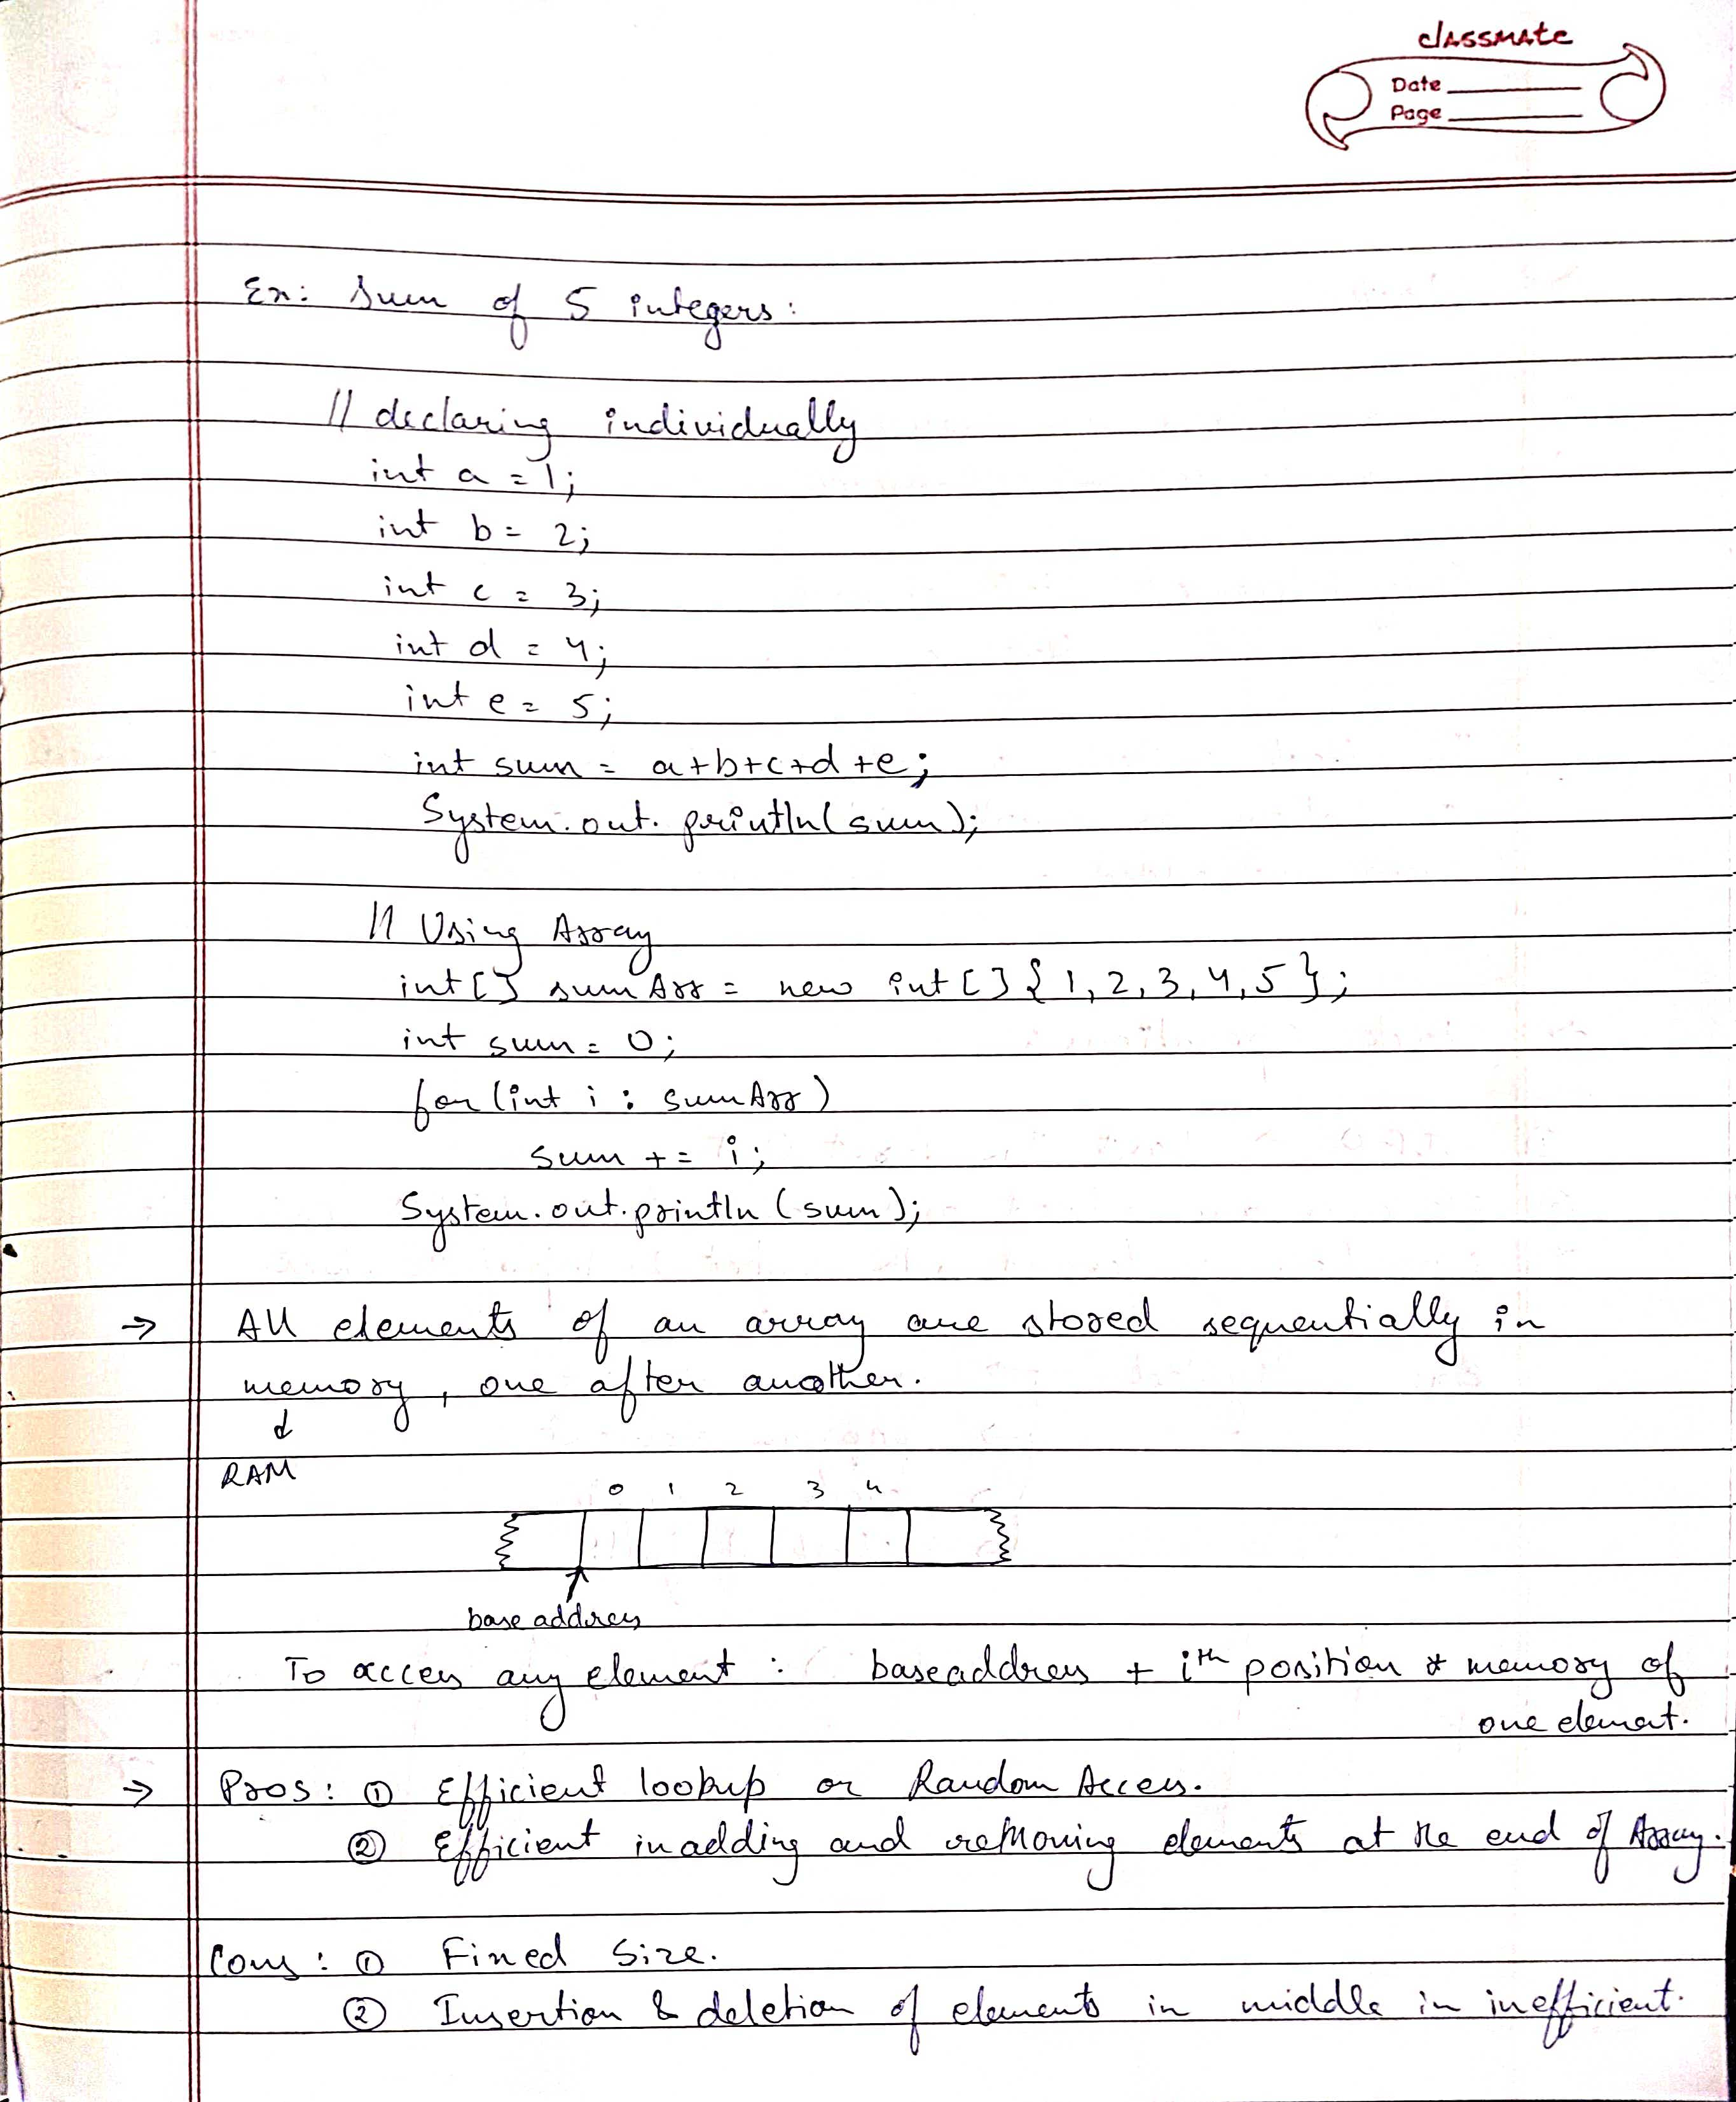 classmate
Date
Page
Ex: Sum of 5 integers:
// declaring individually
int a = 1;
int b = 2;
int c = 3;
int d = 4;
int e = 5;
int sum = a+b+c+d+e;
System.out.println(sum);
// Using Array
int[] sumArr = new int[]{1,2,3,4,5};
int sum = 0;
for(int i : sumArr)
sum += i;
System.out.println(sum);
→ All elements of an array are stored sequentially in
memory, one after another.
↓
RAM
0 1 2 3 4
base address
To access any element : baseaddress + ith position * memory of
one element.
→ Pros: ① Efficient lookup or Random Access.
② Efficient in adding and removing elements at the end of Array.
Cons: ① Fixed Size.
② Insertion & deletion of elements in middle in inefficient.